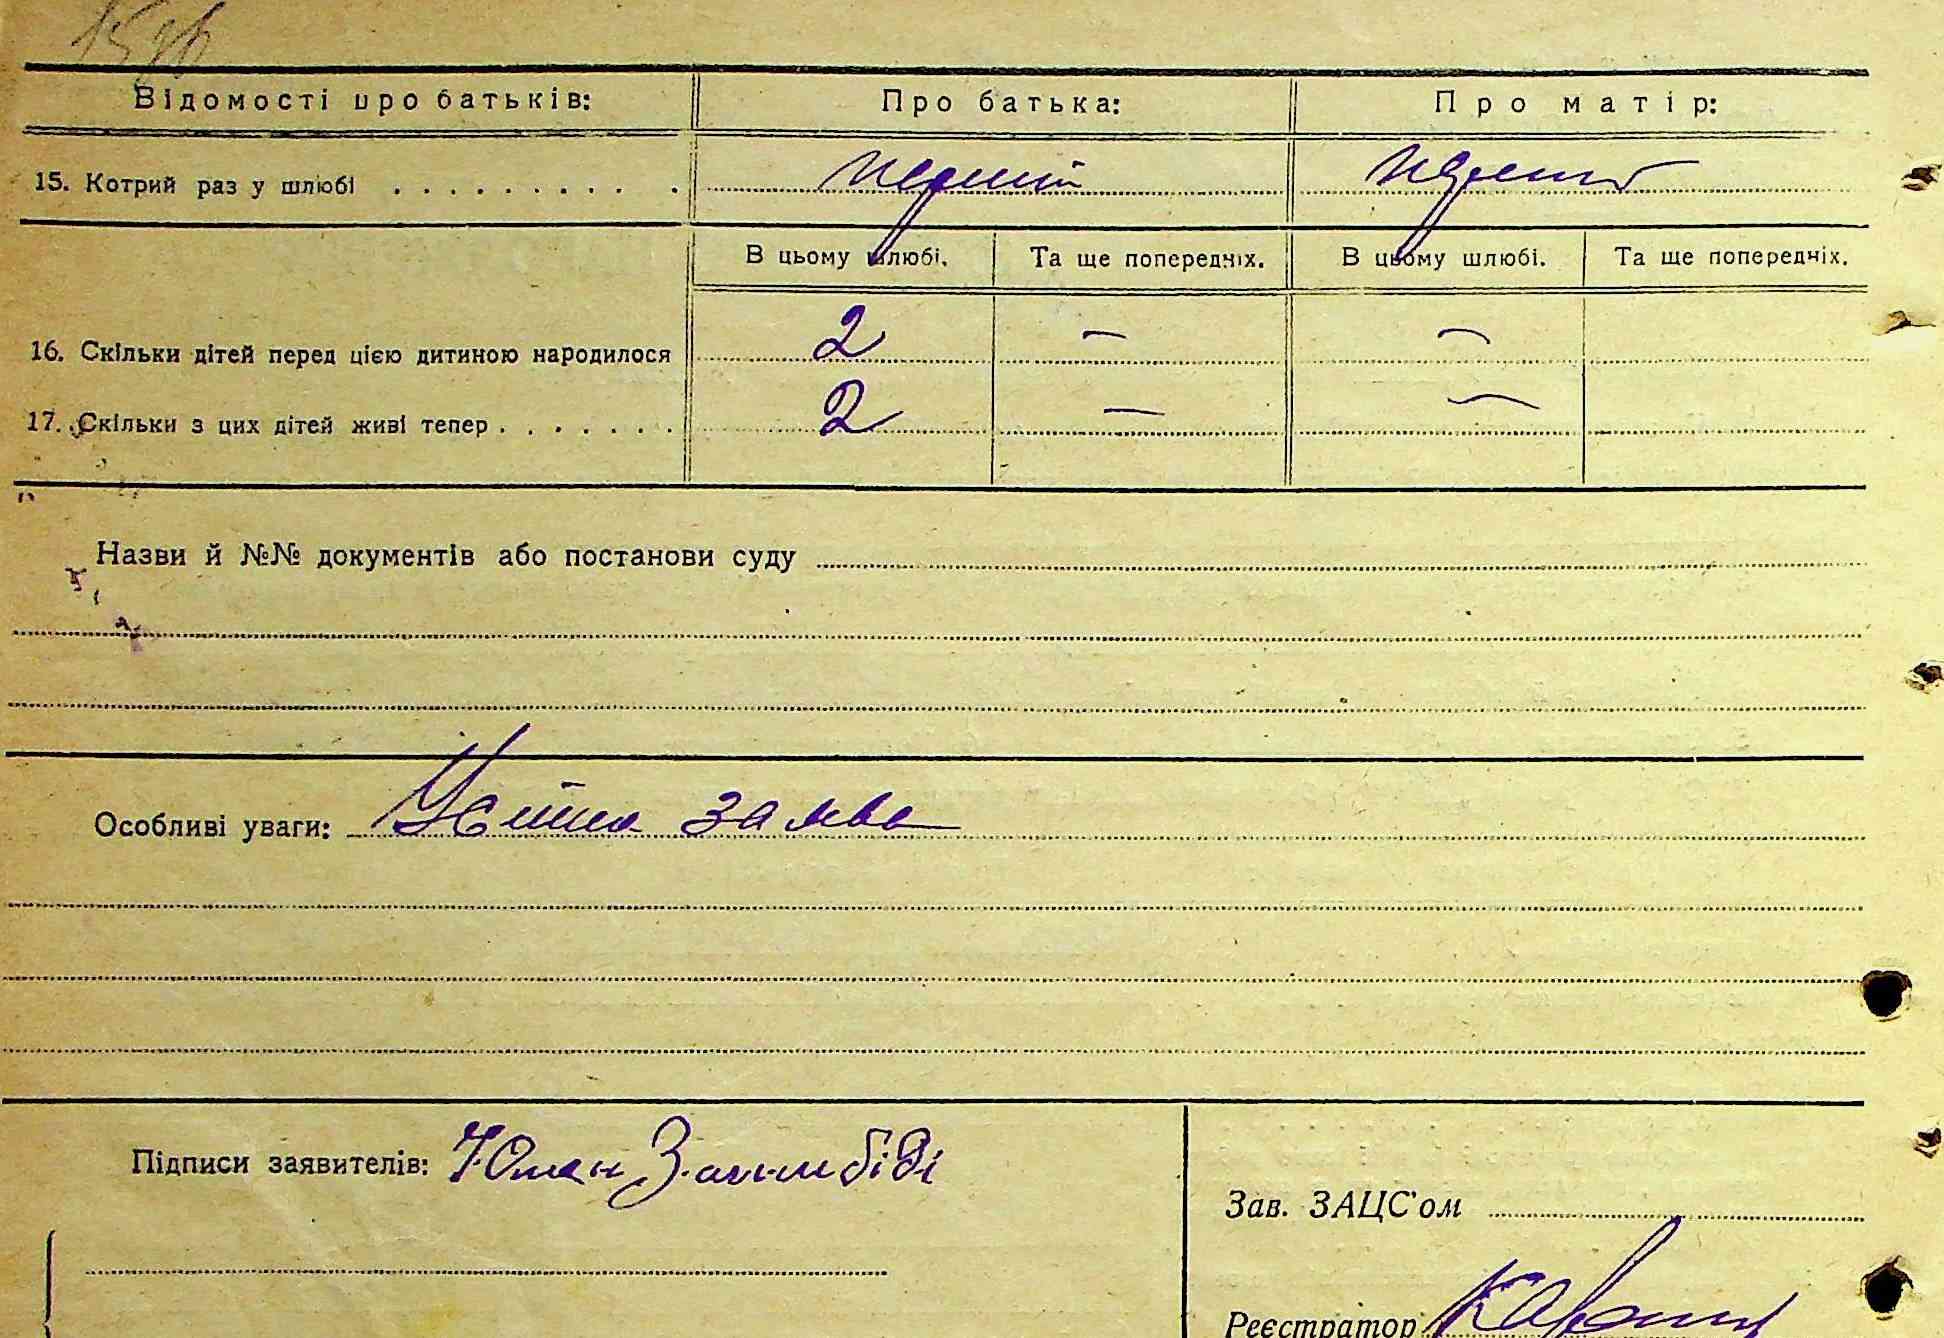 Відомості про батьків: Про батька: Про матір:
15. Котрий раз у шлюбі . . . . . . . . . . перший перший
В цьому шлюбі. Та ще попередніх. В цьому шлюбі. Та ще попередніх.
16. Скільки дітей перед цією дитиною народилося 2 — —
17. Скільки з цих дітей живі тепер . . . . . . . 2 — —
Назви й №№ документів або постанови суду
Особливі уваги: Усна заява
Підписи заявителів:
Зав. ЗАЦС'ом
Реєстратор